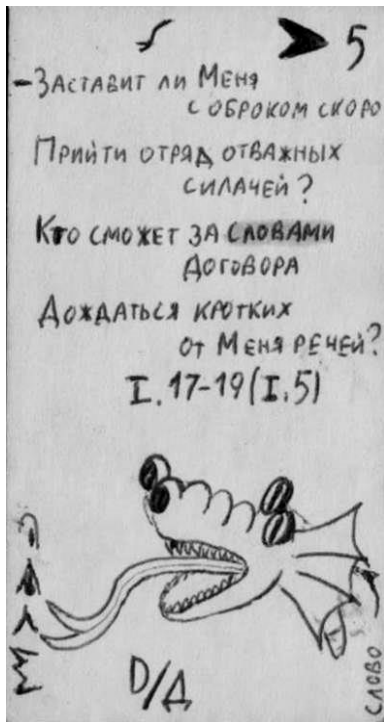 5
-Заставит ли Меня
с оброком скоро
Прийти отряд отважных
силачей?
Кто сможет за словами
договора
Дождаться кротких
от Меня речей?
I. 17-19 (I.5)
D/Д
слово